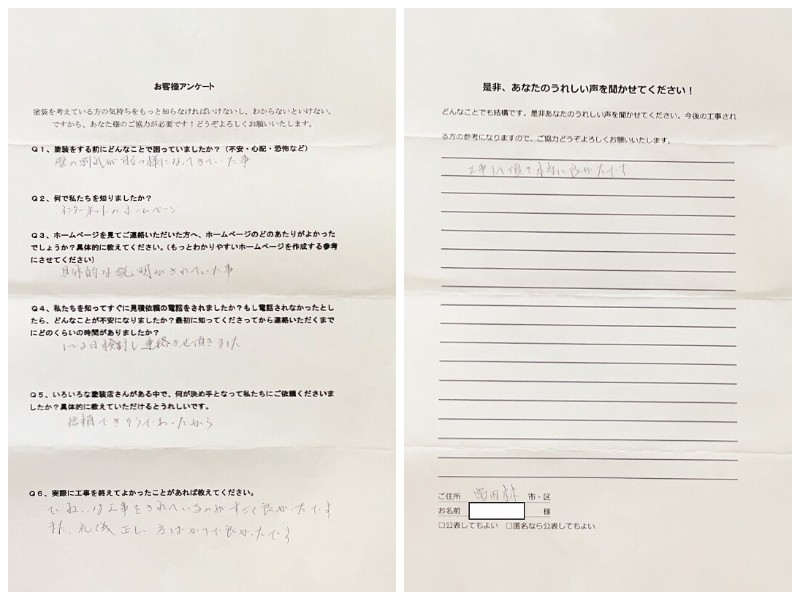 お客様アンケート
塗装を考えている方の気持ちをもっと知らなければいけないし、わからないといけない。
ですから、あなた様のご協力が必要です！どうぞよろしくお願いいたします。
Q１、塗装をする前にどんなことで困っていましたか？（不安・心配・恐怖など）
壁の
になってきていた事
Q２、何で私たちを知りましたか？
インターネットのホームページ
Q３、ホームページを見てご連絡いただいた方へ、ホームページのどのあたりがよかった
でしょうか？具体的に教えてください。（もっとわかりやすいホームページを作成する参考
にさせてください）
具体的な説明がされていた事
Q４、私たちを知ってすぐに見積依頼の電話をされましたか？もし電話されなかったとし
たら、どんなことが不安になりましたか？最初に知ってくださってから連絡いただくまで
にどのくらいの時間がありましたか？
1〜2日検討し連絡させて頂きました
Q５、いろいろな塗装店さんがある中で、何が決め手となって私たちにご依頼くださいま
したか？具体的に教えていただけるとうれしいです。
信頼できそうであったから
Q６、実際に工事を終えてよかったことがあれば教えてください。
ていねいな工事をされているのがすごく良かったです
また、礼儀正しい方ばかりで良かったです
是非、あなたのうれしい声を聞かせてください！
どんなことでも結構です。是非あなたのうれしい声を聞かせてください。今後の工事され
る方の参考になりますので、ご協力どうぞよろしくお願いいたします。
工事して頂き本当に良かったです
ご住所 富田林 市・区
お名前 様
□公表してもよい □匿名なら公表してもよい